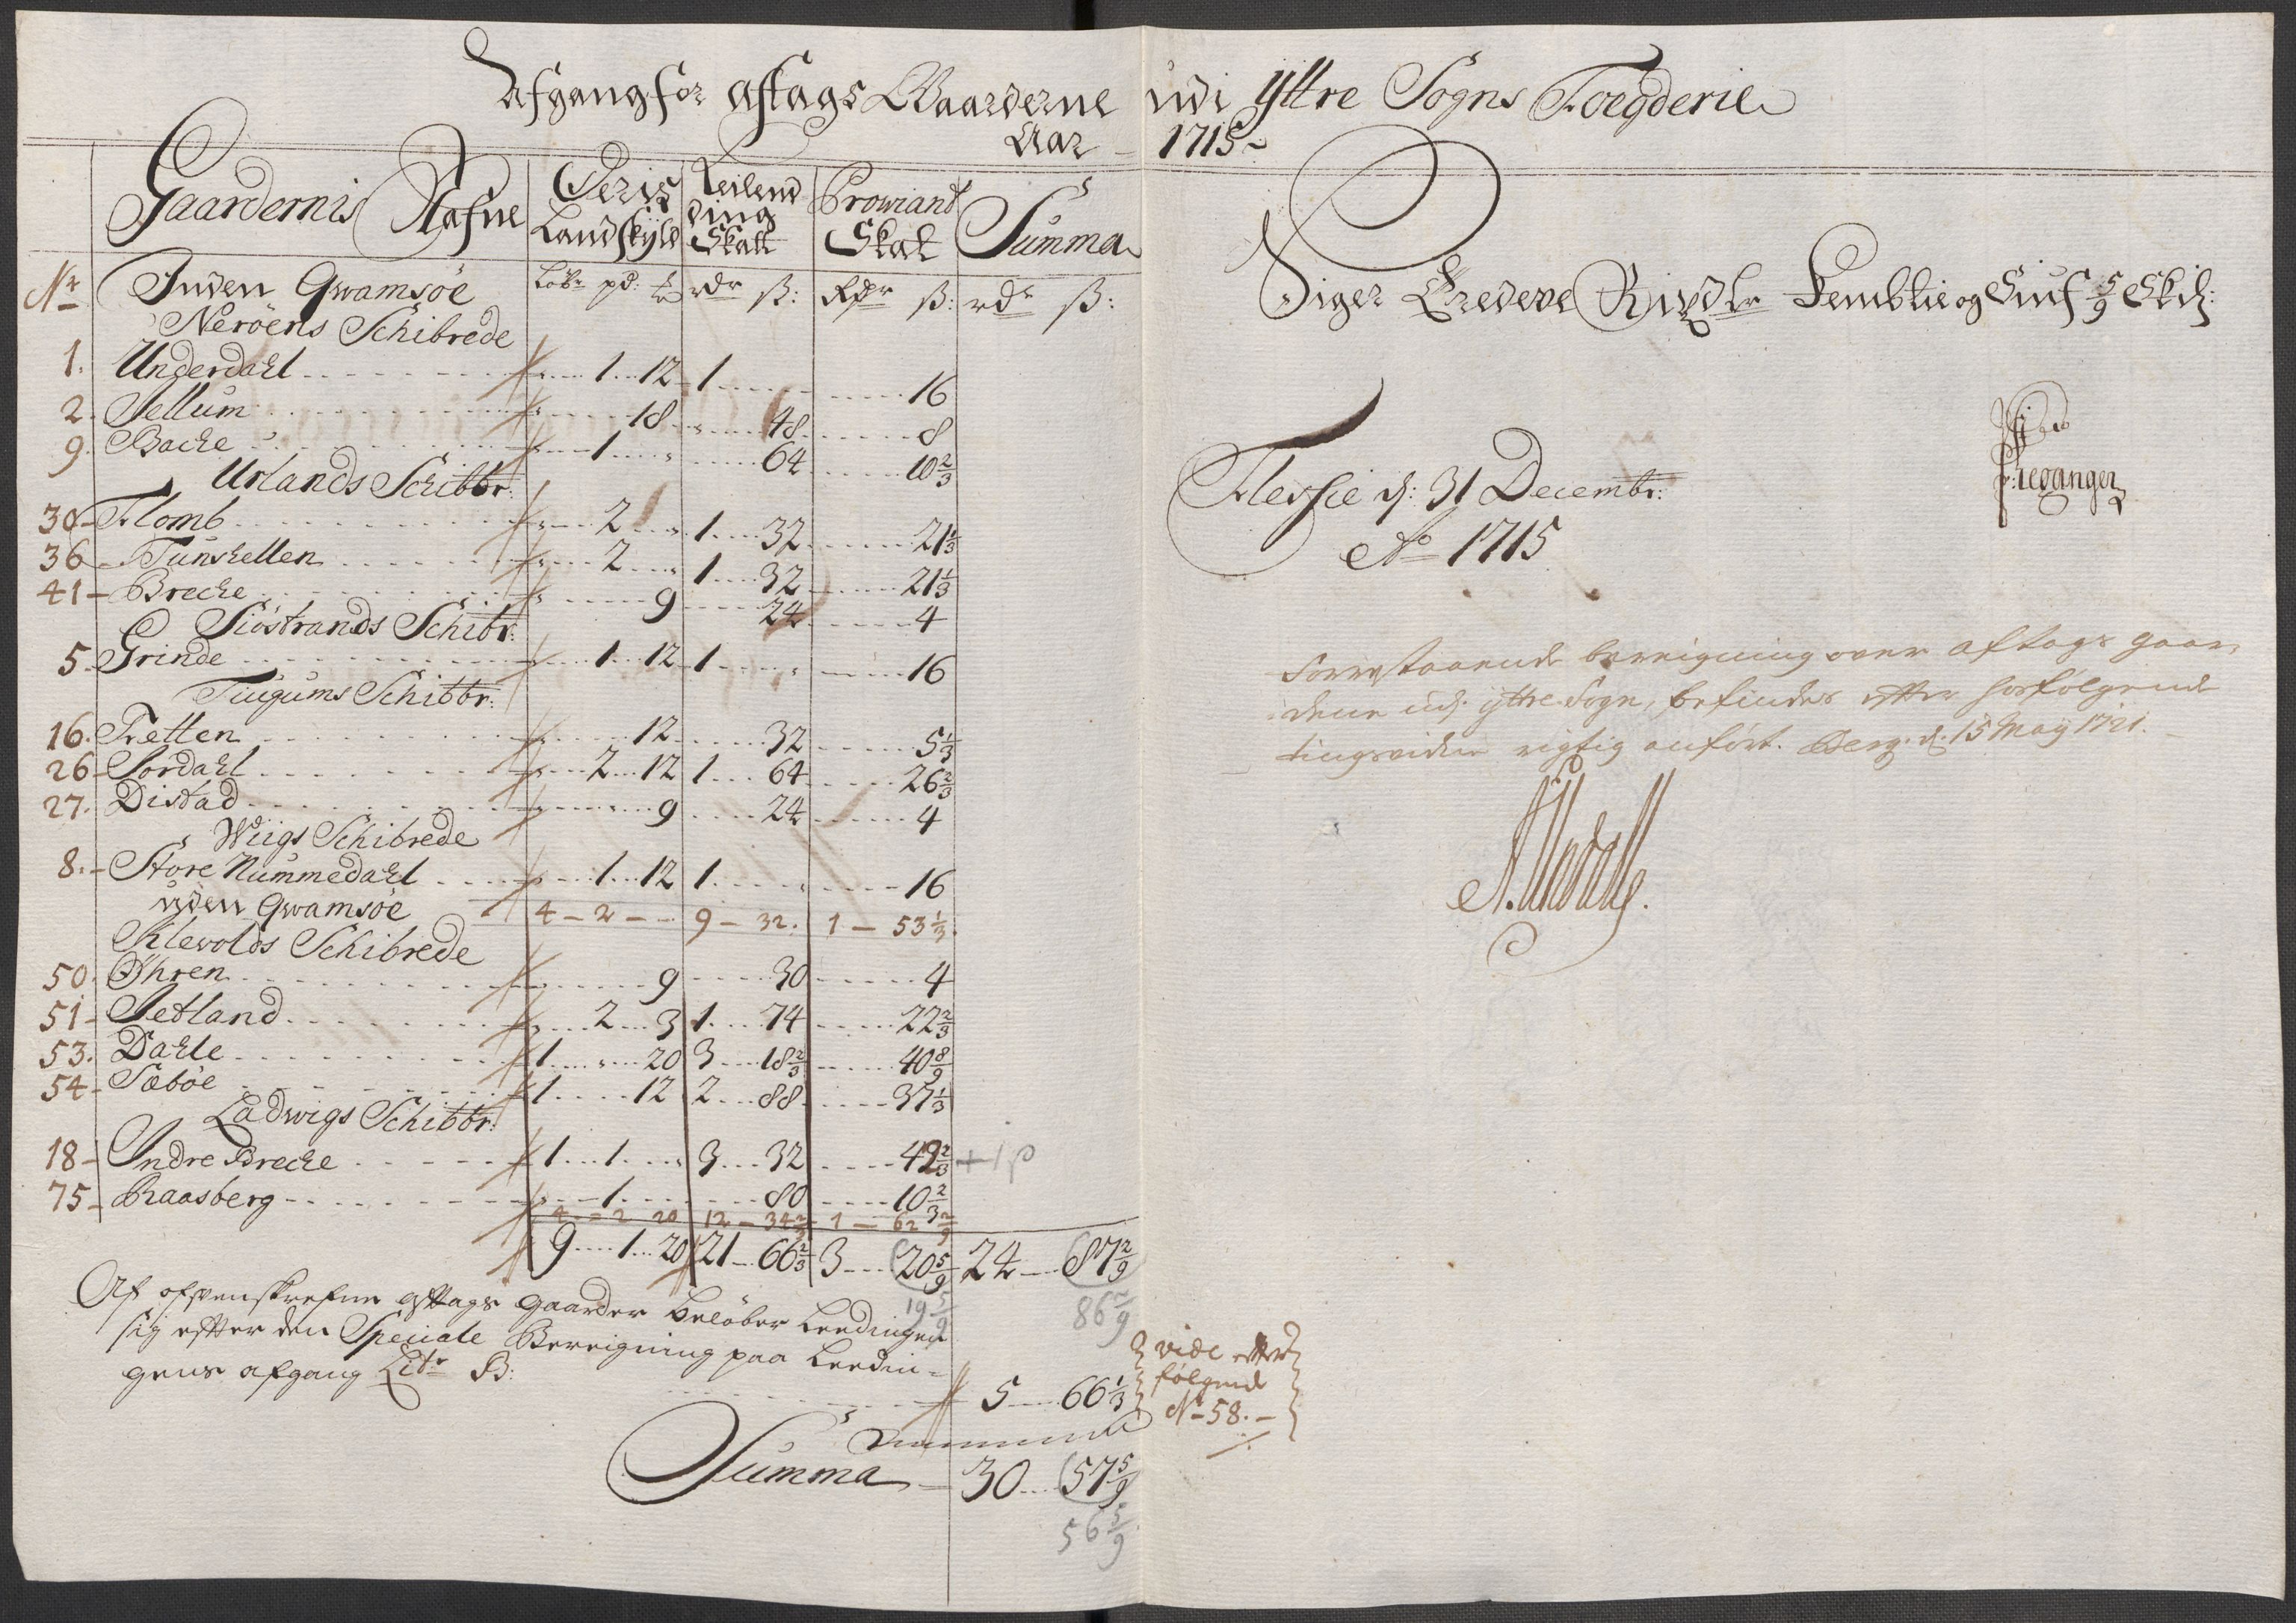 Afgang for aftags Gaarderne udi Yttre Sogns Foegderie
Aar 1715
Gaardernis Nafne
Deris Landskyld
Leilending Skatt
Prowiant Skat
Summa
Nr Inden Qwamsöe Löb: pd: rdr ß: Rdr ß: rdr ß:
Neröens Schibrede
1. Underdahl 1 12 1 16
2. Jellum 18 48 8
9. Backe 1 64 10 2/3
Urlands Schibbr:
30 Flomb 2 1 32 21 1/3
36 Tunshellen 2 1 32 21 1/3
41 Breche 9 24 4
Siöstrands Schibr:
5 Grinde 1 12 1 16
Tiugums Schibbr:
16. Tretten 12 32 5 1/3
26 Sordahl 2 12 1 64 26 2/3
27. Distad 9 24 4
Wiigs Schibrede
8. Store Nummedahl 1 12 1 16
uden Qwamsöe 4 - 2 - - 9 - 32. 1 - 53 1/3.
Klevolds Schibrede
50. Öhren 9 30 4
51 Jetland 2 3 1 74 22 2/3
53. Dahle 1 20 3 18 2/3 40 8/9
54 Sæböe 1 12 2 88 37 1/3
Ladwigs Schibbr:
18 Indre Breche 1 1 3 32 42 2/3 + 1 ß
75 Raasberg 1 80 10 2/3
4 - 2 20 12 - 34 2/3 1 - 62 2/9
9 1 20 21 66 2/3 3 20 5/9 24 87 2/9
19 5/9 86 2/9
Af ofvenskrefne afttags gaarder belöber Leedingen
sig effter den Speciale Bereigning paa Leedin-
gens afgang Litr B:
5 66 1/3
vide effter
følgende
No 58.
Summa 30 57 5/9
56 5/9
Siger Tredeve Rixdlr Fembtie og Siuf 5/9 Skil:
Flessie d: 31 Decembr:
Ao 1715
Forrestaaende bereigning over aftags gaar,
dene udj yttre Sogn, befindes efter hosfølgende
tingsvidne rigtig anfört. Berg. d. 15 May 1721.